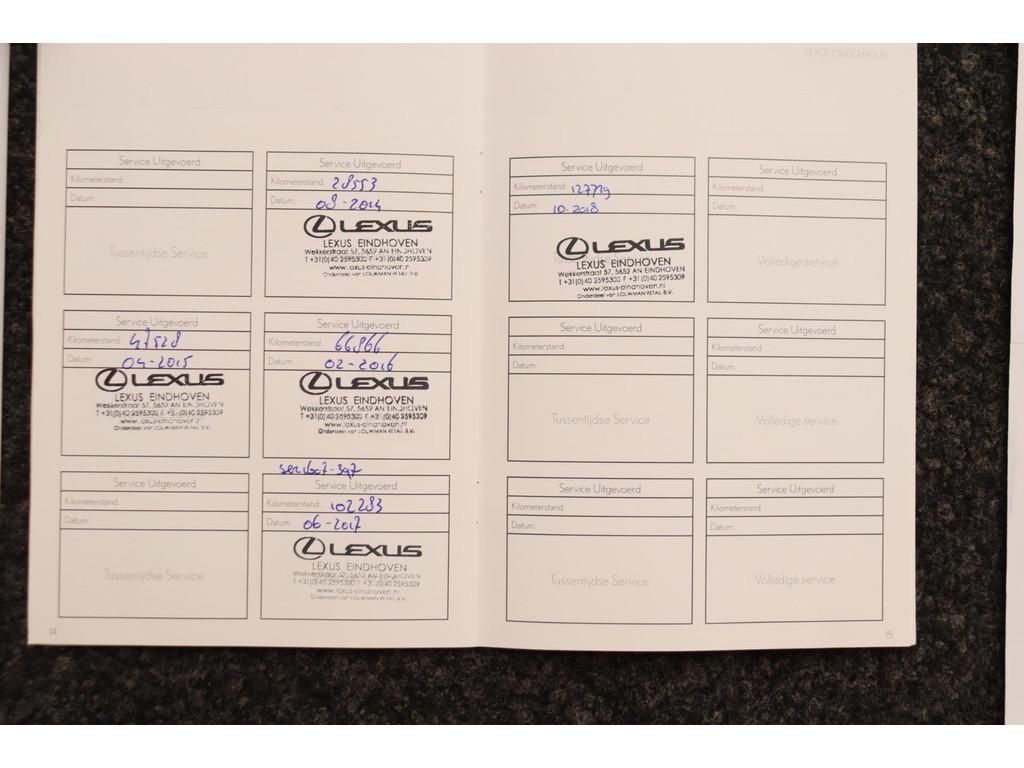 LEXUS ONDERHOUD
Service Uitgevoerd
Kilometerstand:
Datum:
Tussentijdse Service
Service Uitgevoerd
Kilometerstand: 28553
Datum: 08-2014
LEXUS
LEXUS EINDHOVEN
Wekkerstraat 57, 5652 AN EINDHOVEN
T +31(0)40 2595300 F +31(0)40 2595309
www.lexus-eindhoven.nl
Onderdeel van LOUWMAN RETAIL B.V.
Service Uitgevoerd
Kilometerstand: 47528
Datum: 04-2015
LEXUS
LEXUS EINDHOVEN
Wekkerstraat 57, 5652 AN EINDHOVEN
T +31(0)40 2595300 F +31(0)40 2595309
www.lexus-eindhoven.nl
Onderdeel van LOUWMAN RETAIL B.V.
Service Uitgevoerd
Kilometerstand: 66866
Datum: 02-2016
LEXUS
LEXUS EINDHOVEN
Wekkerstraat 57, 5652 AN EINDHOVEN
T +31(0)40 2595300 F +31(0)40 2595309
www.lexus-eindhoven.nl
Onderdeel van LOUWMAN RETAIL B.V.
Service Uitgevoerd
Kilometerstand:
Datum:
Tussentijdse Service
Service Uitgevoerd
Kilometerstand: 102283
Datum: 06-2017
LEXUS
LEXUS EINDHOVEN
Wekkerstraat 57, 5652 AN EINDHOVEN
T +31(0)40 2595300 F +31(0)40 2595309
www.lexus-eindhoven.nl
Onderdeel van LOUWMAN RETAIL B.V.
14
Service Uitgevoerd
Kilometerstand: 127719
Datum: 10-2018
LEXUS
LEXUS EINDHOVEN
Wekkerstraat 57, 5652 AN EINDHOVEN
T +31(0)40 2595300 F +31(0)40 2595309
www.lexus-eindhoven.nl
Onderdeel van LOUWMAN RETAIL B.V.
Service Uitgevoerd
Kilometerstand:
Datum:
Volledige service
Service Uitgevoerd
Kilometerstand:
Datum:
Tussentijdse Service
Service Uitgevoerd
Kilometerstand:
Datum:
Volledige service
Service Uitgevoerd
Kilometerstand:
Datum:
Tussentijdse Service
Service Uitgevoerd
Kilometerstand:
Datum:
Volledige service
15